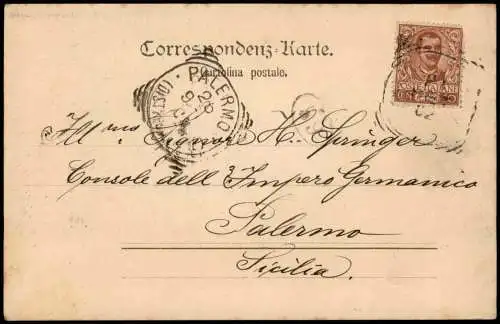 Correspondenz-Karte.
Cartolina postale.
PALERMO
26
9
Ill.mo Signore H. Springer
Console dell'Impero Germanico
Palermo
Sicilia.